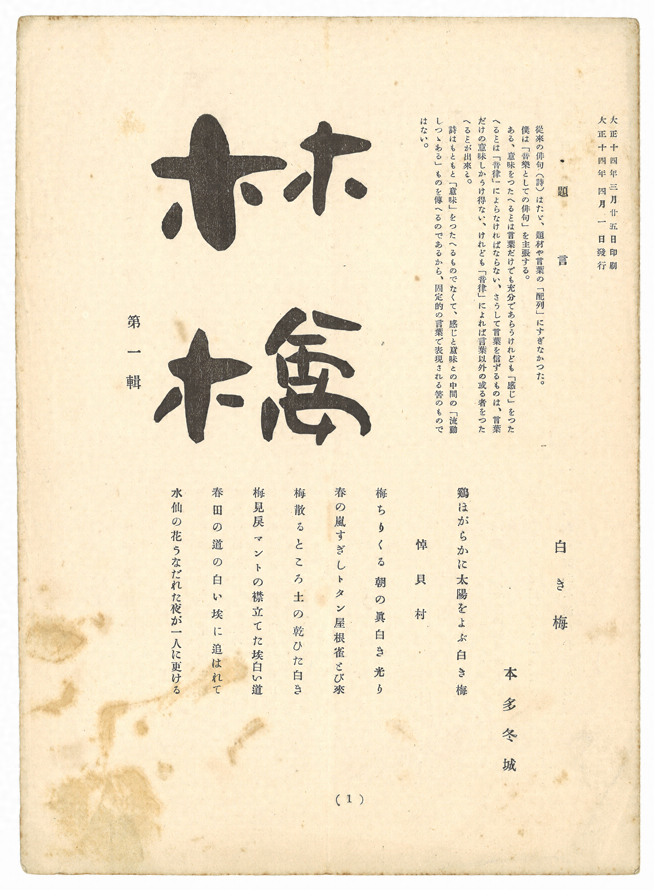 大正十四年三月廿五日印刷
大正十四年四月一日發行
題言
從來の俳句（詩）はたゞ、題材や言葉の「配列」にすぎなかつた。
僕は「音樂としての俳句」を主張する。
ある、意味をつたへるとは言葉だけでも充分であらうけれども「感じ」をつた
へるとは「音律」によらなければならない、さうして言葉を信ずるものは、言葉
だけの意味しかうけ得ない、けれども「音律」によれば言葉以外の或る者をつた
へるとが出來る。
詩はもともと「意味」をつたへるものでなくて、感じと意味との中間の「流動
しつゝある」ものを傳へるのであるから、固定的の言葉で表現される筈のもので
はない。
林檎
第一輯
白き梅
本多冬城
鷄ほがらかに太陽をよぶ白き梅
悼貝村
梅ちりくる朝の眞白き光り
春の嵐すぎしトタン屋根雀とび來
梅散るところ土の乾ひた白き
梅見戻マントの襟立てた埃白い道
春田の道の白い埃に追はれて
水仙の花うなだれた夜が一人に更ける
(1)